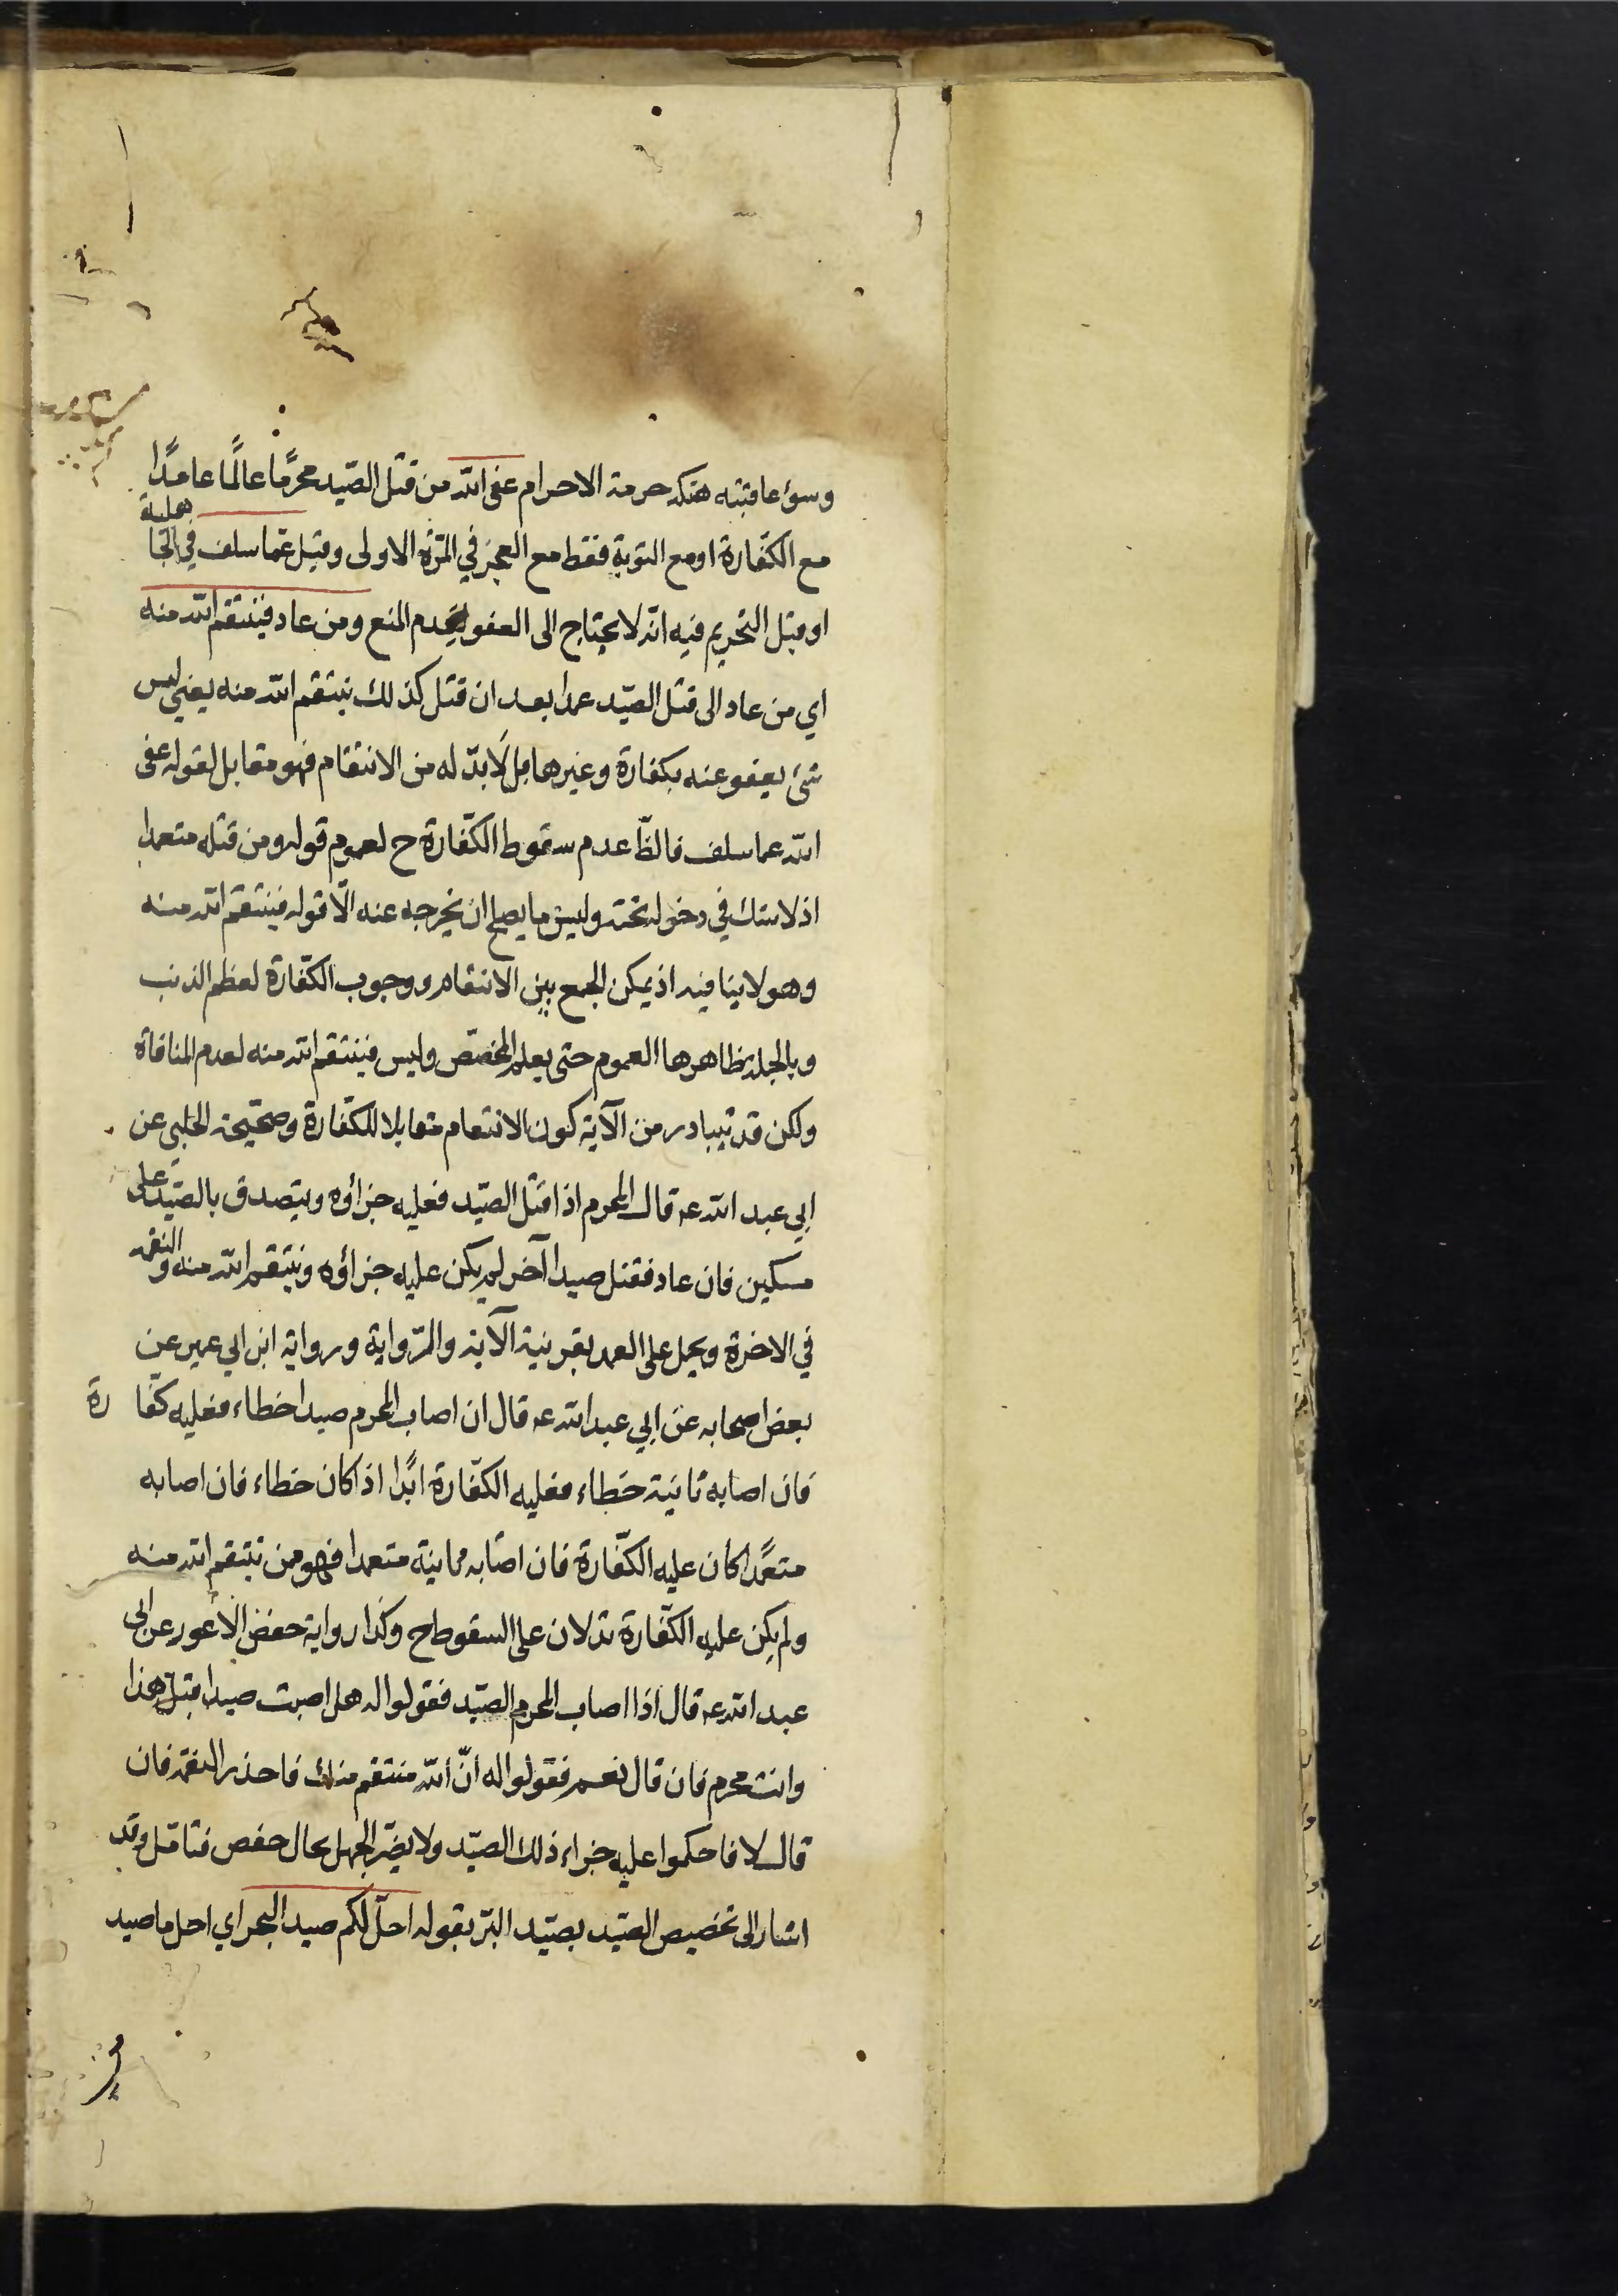 وسوء عاقبته هتكه حرمة الاحرام عفى الله من قتل الصّيد محرمًا عالمًا عامدًا
مع الكفّارة او مع التوبة فقط مع العجز في المرّة الاولى وقيل عمّا سلف في الجا هلية
او قبل التحريم فيه انّه لا يحتاج الى العفو لعدم المنع ومن عاد فينتقم الله منه
اي من عاد الى قتل الصّيد عمدا بعد ان قتل كذلك ينتقم الله منه يعني ليس
شئ يعفو عنه بكفارة وغيرها بل لابدّ له من الانتقام فهو مقابل لقوله عفى
الله عما سلف فالظّ عدم سقوط الكفّارة ح لعموم قوله ومن قتله متعمدا
اذ لا شك في دخوله تحته وليس ما يصلح ان يخرجه عنه الّا قوله فينتقم الله منه
وهو لا ينافيه اذ يمكن الجمع بين الانتقام ووجوب الكفّارة لعظم الذنب
وبالجملة ظاهرها العموم حتى يعلم المخصّص وليس فينتقم الله منه لعدم المنافاة
ولكن قد يتبادر من الآية كون الانتقام مقابلا للكفّارة وصحّيحة الحلبي عن
ابي عبد الله عـ قال المحرم اذا قتل الصّيد فعليه جزاؤه ويتصدق بالصّيد على
مسكين فان عاد فقتل صيدا آخر لم يكن عليه جزاؤه وينتقم الله منه والنقمة
في الاخرة ويحمل على العمد بقرينية الآية والرّواية ورواية ابن ابي عمير عن
بعض اصحابه عن ابي عبد الله عـ قال ان اصاب المحرم صيدا خطاء فعليه كفّا رة
فان اصابه ثانية خطاء فعليه الكفّارة ابدًا اذا كان خطاء فان اصابه
متعمّدا كان عليه الكفّارة فان اصابه ثانية متعمدا فهو ممن ينتقم الله منه
ولم يكن عليه الكفّارة تدلان على السقوط ح وكذا رواية حفص الاعور عن ابى
عبد الله عـ قال اذا اصاب المحرم الصّيد فقولوا له هل اصبت صيدا قبل هذا
وانت محرم فان قال نعم فقولوا له انّ الله منتقم منك فاحذر النقمة فان
قال لا فاحكموا عليه جزاء ذلك الصّيد ولا يضّر الجهل بحال حفص فتامّل وقد
اشار الى تخصيص الصّيد بصيّد البرّ بقوله احلّ لكم صيد البحر اي احل ما صيد